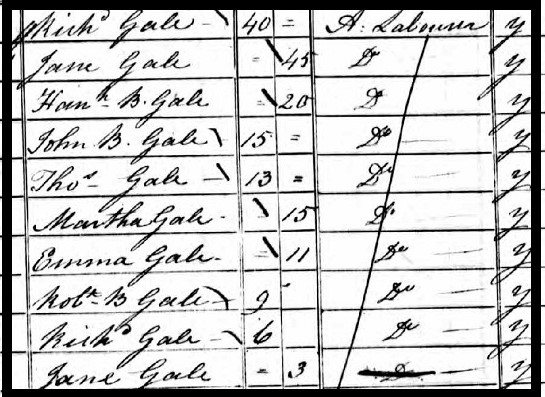 Richd Gale 40 = A. Labourer y
Jane Gale = 45 Do y
Hanh B. Gale = 20 Do y
John B. Gale 15 = Do y
Thos Gale 13 = Do y
Martha Gale 15 Do y
Emma Gale = 11 Do y
Robt B Gale 9 Do y
Richd Gale 6 Do y
Jane Gale = 3 y